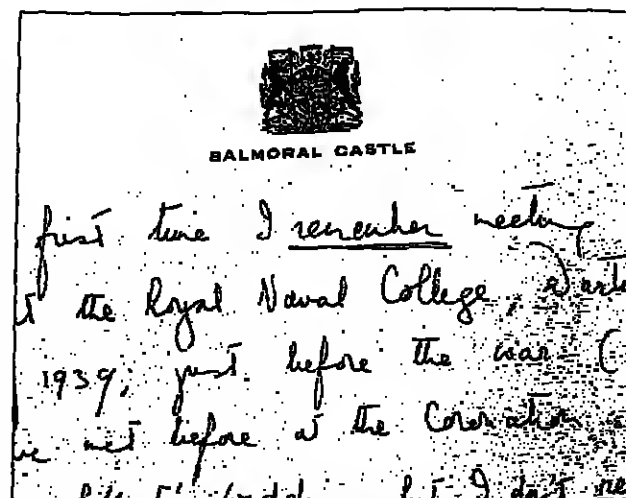 BALMORAL CASTLE
first time I remember meeting
the Royal Naval College,
1939, just before the war (
met before at the Coronation
but I don't